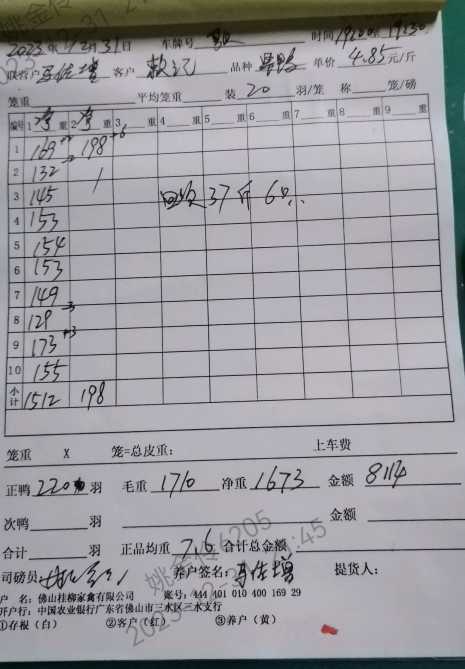 2023年12月31日 车牌号 时间19:00 19:30
联营户 马佳增 客户 品种 单价 4.85 元/斤
笼重 平均笼重 装 20 羽/笼 称 笼/磅
编号 1 净 重 2 净 重 3 重 4 重 5 重 6 重 7 重 8 重 9 重
1 169 198 +6
2 132
3 145 回次37斤6只
4 153
5 154
6 153
7 149
8 129 -3
9 173 +3
10 155
小计 1512 198
笼重 X 笼=总皮重: 上车费
正鸭 220 羽 毛重 1710 净重 1673 金额 8114
次鸭 羽 金额
合计 羽 正品均重 7.6 合计总金额
司磅员: 养户签名: 马佳增 提货人:
户 名: 佛山桂柳家禽有限公司 账号: 444 401 010 400 169 29
开户行: 中国农业银行广东省佛山市三水区三水支行
①存根（白） ②客户（红） ③养户（黄）